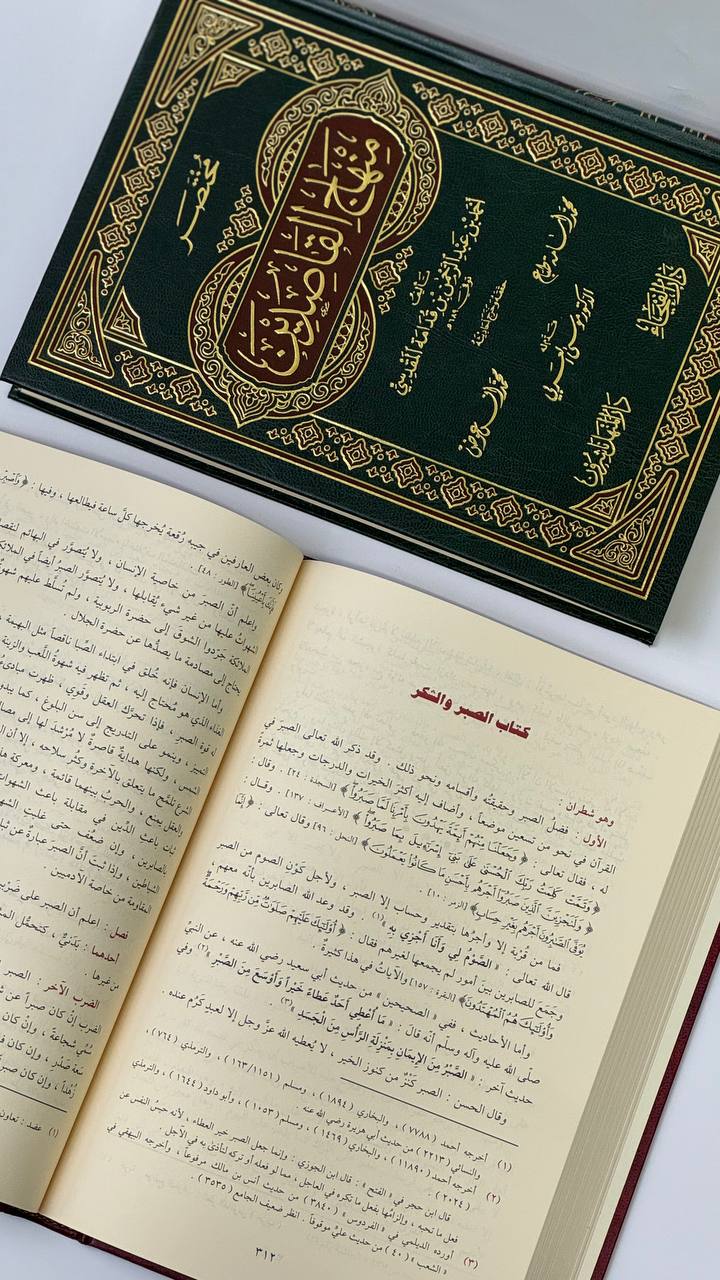 مختصر
منهاج القاصدين
تأليف
أحمد بن عبد الرحمن بن قدامة المقدسي
دار الفيحاء
دار المنهل ناشرون
كتاب الصبر والشكر
وهو شطران :
الأول : فضلُ الصبر وحقيقتُه وأقسامه ونحو ذلك . وقد ذكر الله تعالى الصبر في
القرآن في نحو من تسعين موضعاً ، وأضاف إليه أكثرَ الخيرات والدرجات وجعلها ثمرة
له ، فقال تعالى : ﴿ وَجَعَلْنَا مِنْهُمْ أَئِمَّةً يَهْدُونَ بِأَمْرِنَا لَمَّا صَبَرُوا ﴾ [السجدة : ٢٤] . وقال :
﴿ وَتَمَّتْ كَلِمَتُ رَبِّكَ الْحُسْنَى عَلَى بَنِي إِسْرَائِيلَ بِمَا صَبَرُوا ﴾ [الأعراف : ١٣٧] . وقال :
﴿ وَلَنَجْزِيَنَّ الَّذِينَ صَبَرُوا أَجْرَهُم بِأَحْسَنِ مَا كَانُوا يَعْمَلُونَ ﴾ [النحل : ٩٦] وقال تعالى : ﴿ إِنَّمَا
يُوَفَّى الصَّابِرُونَ أَجْرَهُم بِغَيْرِ حِسَابٍ ﴾ [الزمر : ١٠] .
فما من قُربة إلا وأجرُها بتقدير وحساب إلا الصبر ، ولأجل كَوْن الصوم من الصبر
قال الله تعالى : « الصَّوْمُ لِي وَأَنَا أَجْزِي بِهِ »(١) . وقد وعد الله الصابرين بأنَّه معهم ،
وجَمَعَ للصابرين بين أمور لم يجمعها لغيرهم فقال : ﴿ أُولَئِكَ عَلَيْهِمْ صَلَوَاتٌ مِن رَّبِّهِمْ وَرَحْمَةٌ
وَأُولَئِكَ هُمُ الْمُهْتَدُونَ ﴾ [البقرة : ١٥٧] والآياتُ في هذا كثيرةٌ .
وأما الأحاديث ، ففي « الصحيحين » من حديث أبي سعيد رضي الله عنه ، عن النبيِّ
صلَّى الله عليه وآله وسلَّم أنَّه قال : « مَا أُعْطِي أَحَدٌ عَطَاءً خَيْراً وَأَوْسَعَ مِنَ الصَّبْرِ »(٢) وفي
حديث آخر : « الصَّبْرُ مِنَ الإِيمَانِ بِمَنْزِلَةِ الرَّأْسِ مِنَ الْجَسَدِ »(٣) .
وقال الحسن : الصبر كَنْزٌ من كنوز الخير ، لا يُعطيه الله عزَّ وجل إلا لعبدٍ كَرُم عنده .
(١) أخرجه أحمد ( ٧٧٨٨ ) ، والبخاري ( ١٨٩٤ ) ، ومسلم ( ١٦٣/١١٥١ ) ، والترمذي ( ٧٦٤ ) ،
والنسائي ( ٢٢١٣ ) من حديث أبي هريرة رضي الله عنه .
(٢) أخرجه أحمد ( ١١٨٩٠ ) ، والبخاري ( ١٤٦٩ ) ، ومسلم ( ١٠٥٣ ) ، وأبو داود ( ١٦٤٤ ) ، والترمذي
( ٢٠٢٤ ) .
قال ابن حجر في « الفتح » : قال ابن الجوزي : وإنما جعل الصبر خير العطاء ، لأنه حبسُ النفس عن
فعل ما تحبه ، وإلزامُها بفعل ما تكره في العاجل ، مما لو فعله أو تركه لتأذى به في الآجل .
(٣) أورده الديلمي في « الفردوس » ( ٣٨٤٠ ) من حديث أنس بن مالك مرفوعاً ، وأخرجه البيهقي في
« الشعب » ( ٤٠ ) من حديث عليٍّ موقوفاً . انظر ضعيف الجامع ( ٣٥٣٥ ) .
٣١٢
وكان بعض العارفين في جيبه رُقعة يُخرجها كلَّ ساعة فيطالعها ، وفيها : ﴿ وَاصْبِرْ
[الطور : ٤٨] .
واعلم أنَّ الصبرَ من خاصية الإنسان ، ولا يُتصوَّر في البهائم لنقصا
الشهواتُ عليها من غير شيء يُقابلها ، ولا يُتصوَّر الصبرُ أيضاً في الملائك
الملائكة جُرِّدوا الشوقَ إلى حضرة الربوبية ، ولم تُسلَّط عليهم شهوةٌ
يحتاج إلى مصادمة ما يصدُّها عن حضرة الجلال .
وأما الإنسان فإنه خُلق في ابتداء الصِّبا ناقصاً مثل البهيمة ،
الغذاء الذي هو مُحتاج إليه ، ثم تظهر فيه شهوةُ اللَّعب والزينة
له قوة الصبر ، فإذا تحرَّك العقل وقوي ، ظهرت مبادئ
التمييز ، وينمو على التدريج إلى سن البلوغ ، كما يبدو
الشمس ، ولكنها هدايةٌ قاصرةٌ لا مُرشدَ لها إلى مصالح
الشرع تلمَّح ما يتعلق بالآخرة وكثُر سلاحه ، إلا أن
والعقل يمنع ، والحربُ بينهما قائمة ، ومعركة
ثبات باعث الدِّين في مقابلة باعث الشهوات
بالصابرين ، وإن ضعُف حتى غلبت الشهوة
الشياطين ، وإذا ثبتَ أنَّ الصبرَ عبارةٌ عن ثبات
المقاومة من خاصة الآدميين .
فصل : اعلم أن الصبر على ضَرْبين
أحدهما : بَدَنيٌّ ، كتحمُّل
من غيرها .
الضرب الآخر : الصبر
الضرب إنْ كان صبراً عن
سُمِّي شجاعةً ، وإنْ كان
سَعَة صَدْر ، وإن كان
زُهْداً ، وإن كان صبراً
(١) عضد : تعاون